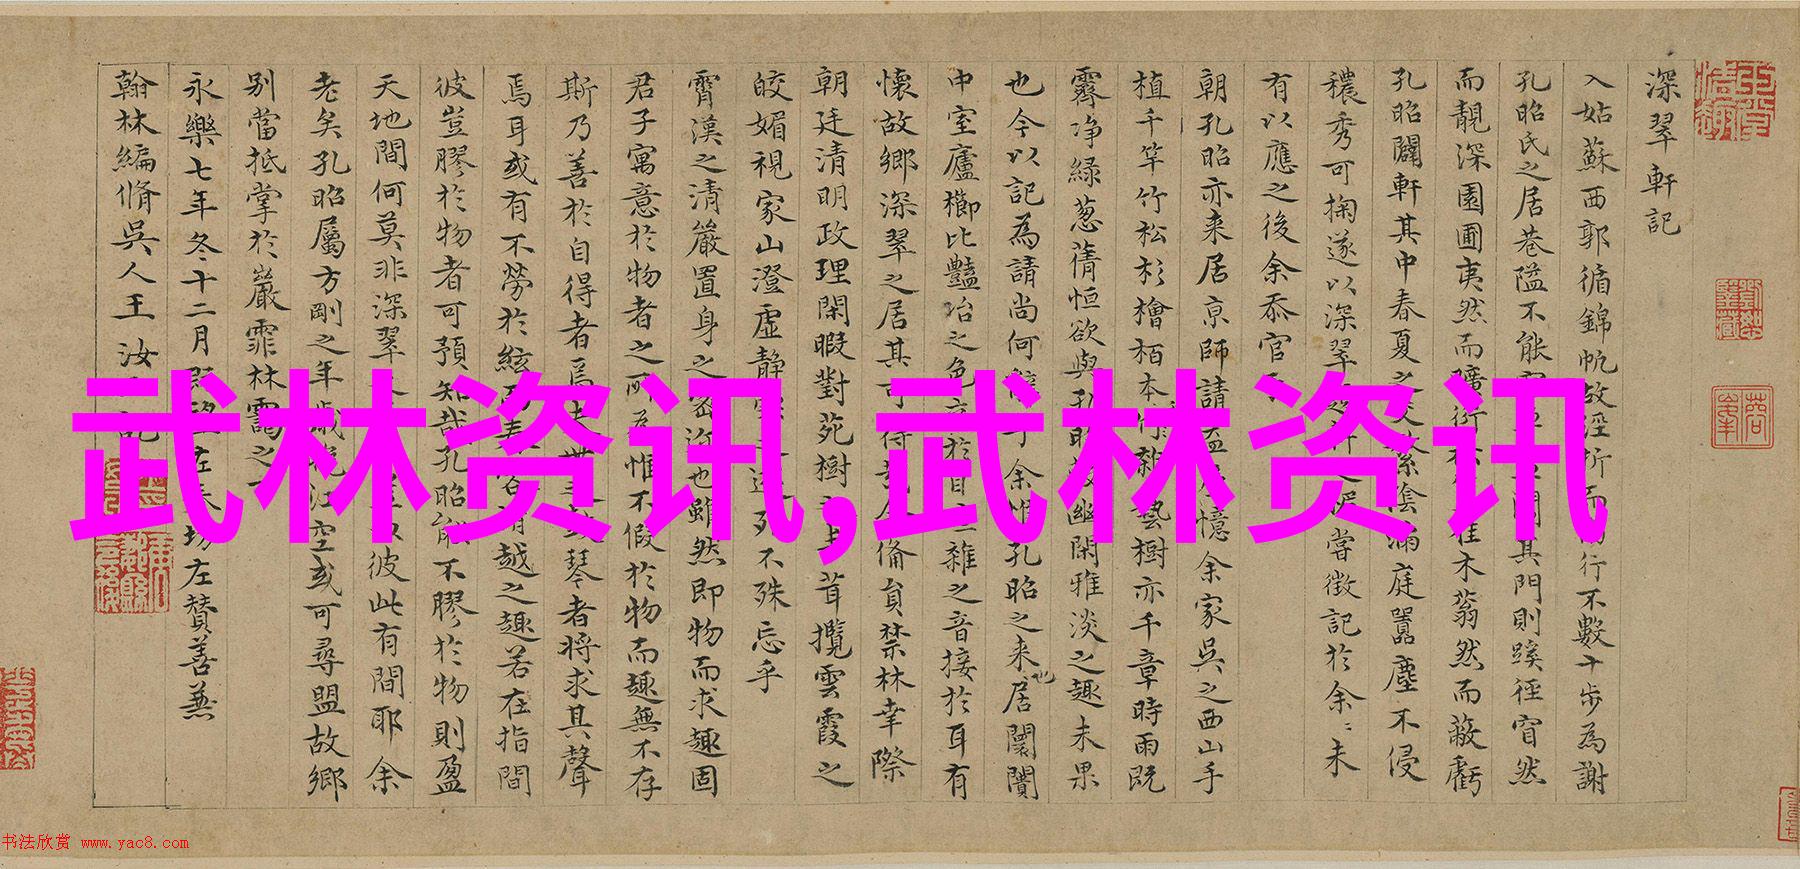 深翠軒記
入姑蘇西郭循錦帆故涇折而行不數十步為謝
孔昭氏之居巷隘不能其門則蹊徑窅然
而靚深園圃夷然而曠衍木蓊然而蔽虧
孔昭闢軒其中春夏之交繁陰滿庭囂塵不侵
穠秀可掬遂以深翠嘗徵記於余〻未
有以應之後余忝官
朝孔昭亦来居京師請憶余家吳之西山手
植千竿竹松杉檜栢本藝樹亦千章時雨既
霽净緑葱蒨恒欲與孔幽閑雅淡之趣未果
也今以記為請尚何余惟孔昭之来居闤闠
中室廬櫛比豔冶之色於目雜之音接於耳有
懷故鄉深翠之居其可得禁林幸際
朝廷清明政理閑暇對苑樹茸攬雲霞之
皎媚視家山澄虛静不殊忘乎
霄漢之清嚴置身之密近也雖然即物而求趣固
君子寓意於物者之所為惟不假於物而趣無不存
斯乃善於自得者焉琴者將求其聲
焉耳或有不勞於絃越之趣若在指間
彼豈膠於物者可預知哉孔昭能不膠於物則盈
天地間何莫非深翠以彼此有間耶余
老矣孔昭屬方剛之年歲晚江空或可尋盟故鄉
别當抵掌於巖霏林靄之
永樂七年冬十二月左春坊左贊善兼
翰林編脩吳人王汝記
武林资讯,武林资讯
书法欣赏 www.yac8.com